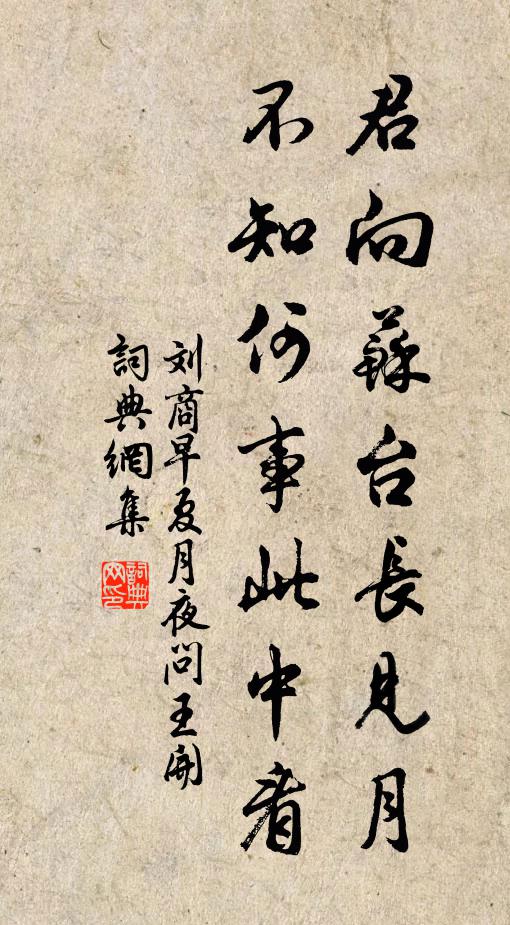 君向蘇台長見月
不知何事此中看
刘商早夏月夜問王開
詞典網集
詞典网印